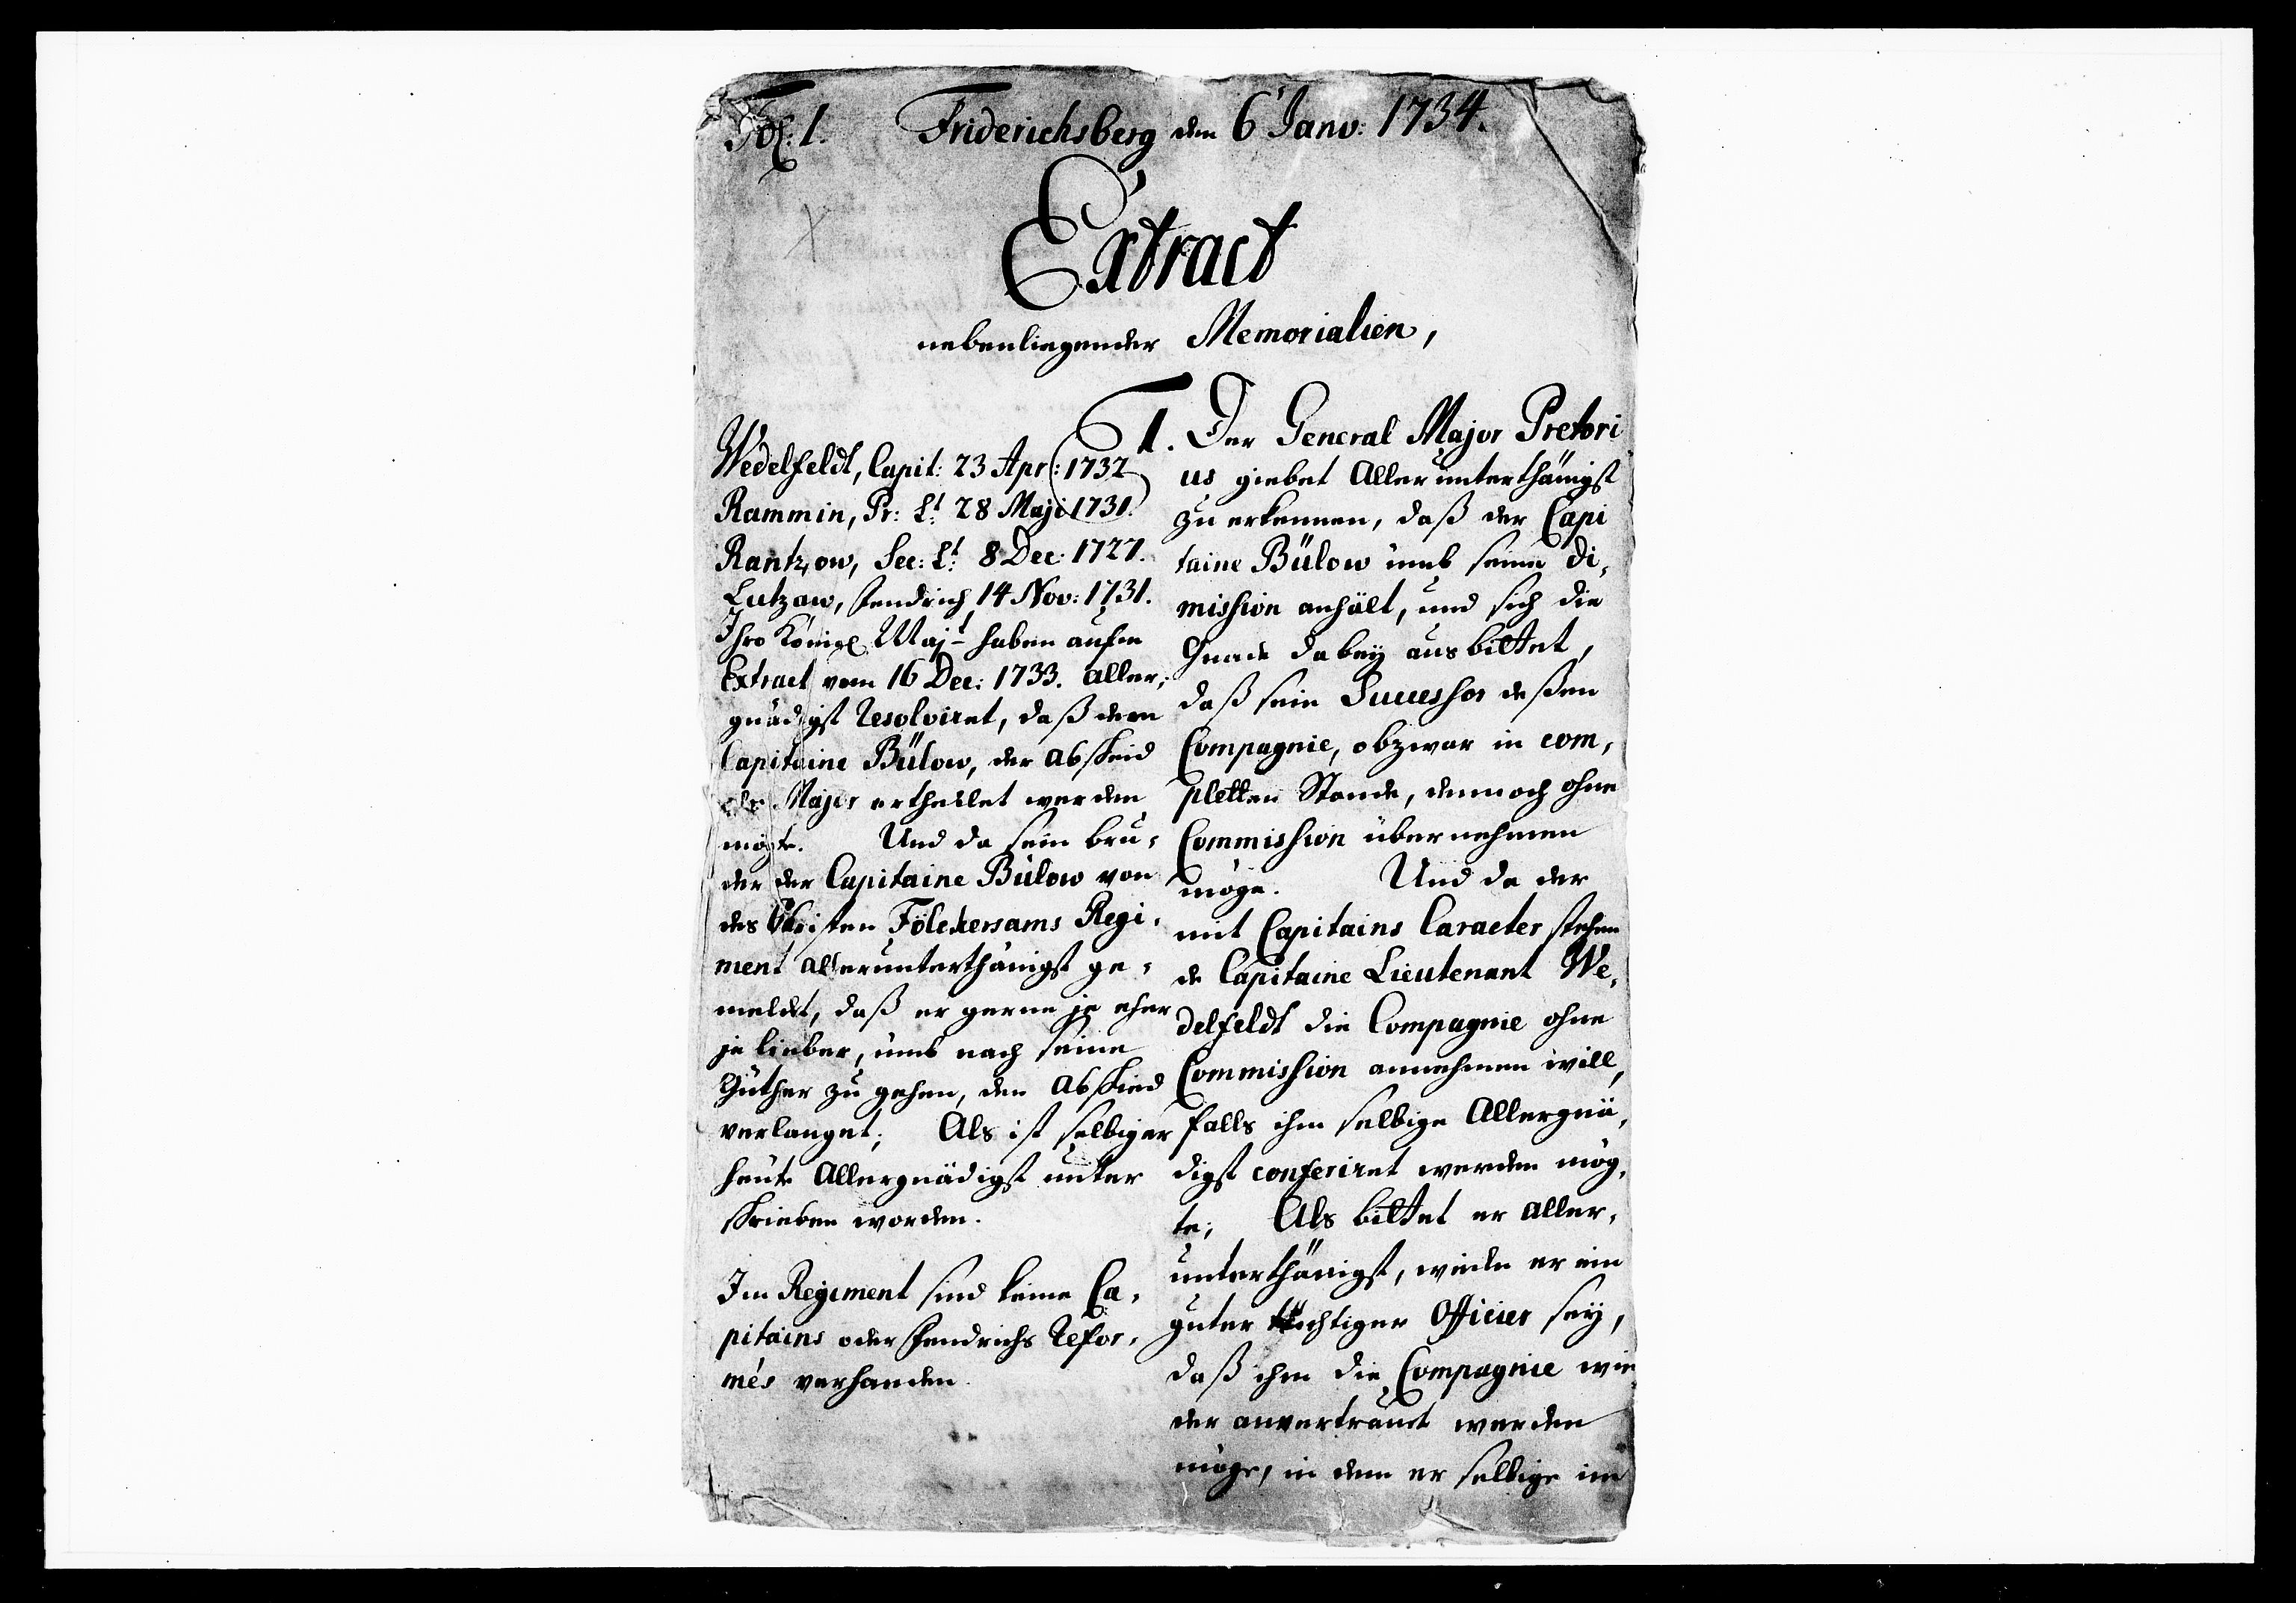 Fol: 1. Friderichsberg den 6 Janv: 1734.
Extract
nebenliegender Memorialien,
Wedelfeldt, Capit: 23 Apr: 1732
Rammin, Pr: Lt: 28 Maji 1731.
Rantzow, Sec: Lt: 8 Dec: 1727.
Lutzow, Fendrich 14 Nov: 1731.
Ihro Königl Majt haben aufm
Extract vom 16 Dec: 1733. aller-
gnädigst Resolviret, daß dem
Capitaine Bülow, der Abscheid
als Major ertheilet werden
mögte. Und da sein bru-
der der Capitaine Bülow von
des Obristen Fölckersams Regi-
ment allerunterthänigst ge-
meldet, daß er gerne je eher
je lieber, umb nach seine
Güther zu gehen, den Abschied
verlanget; Als ist selbiger
heute Allergnädigst unter
schrieben worden.
Im Regiment sind keine Ca-
pitains oder Fendrichs Refor-
més verhanden.
1. Der General Major Pretori
us giebet Allerunterthänigst
zu erkennen, daß der Capi
taine Bülow umb seine di-
mission anhält, und sich die
Gnade dabey ausbittet,
daß sein Successor deßen
Compagnie, obzwar in com-
pletten Stande, dennoch ohne
Commission übernehmen
möge. Und da der
mit Capitains Caracter stehen
de Capitaine Lieutenant We-
delfeldt die Compagnie ohne
Commission annehmen will,
falls ihm selbige Allergnä-
digst conferiret werden mög-
te; Als bittet er aller-
unterthänigst, weilen er ein
guter tüchtiger Officier sey,
daß ihm die Compagnie wie
der anvertraut werden
möge, in dem er selbige im